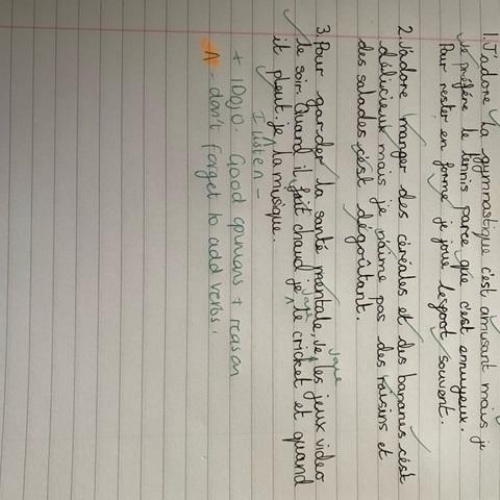 1. J'adore la gymnastique c'est amusant mais je
Je préfère le tennis parce que c'est ennuyeux.
Pour rester en forme je joue souvent.
2. J'adore manger des céréales et des bananes c'est
délicieux mais je n'aime pas des raisins et
des salades c'est dégoûtant.
joue
3. Pour garder la santé mentale, Je les jeux video
joue
le soir. Quand il fait chaud je le cricket et quand
it pleut. je la musique.
I listen -
+ 1DOJO. Good opinions + reason
- don't forget to add verbs.